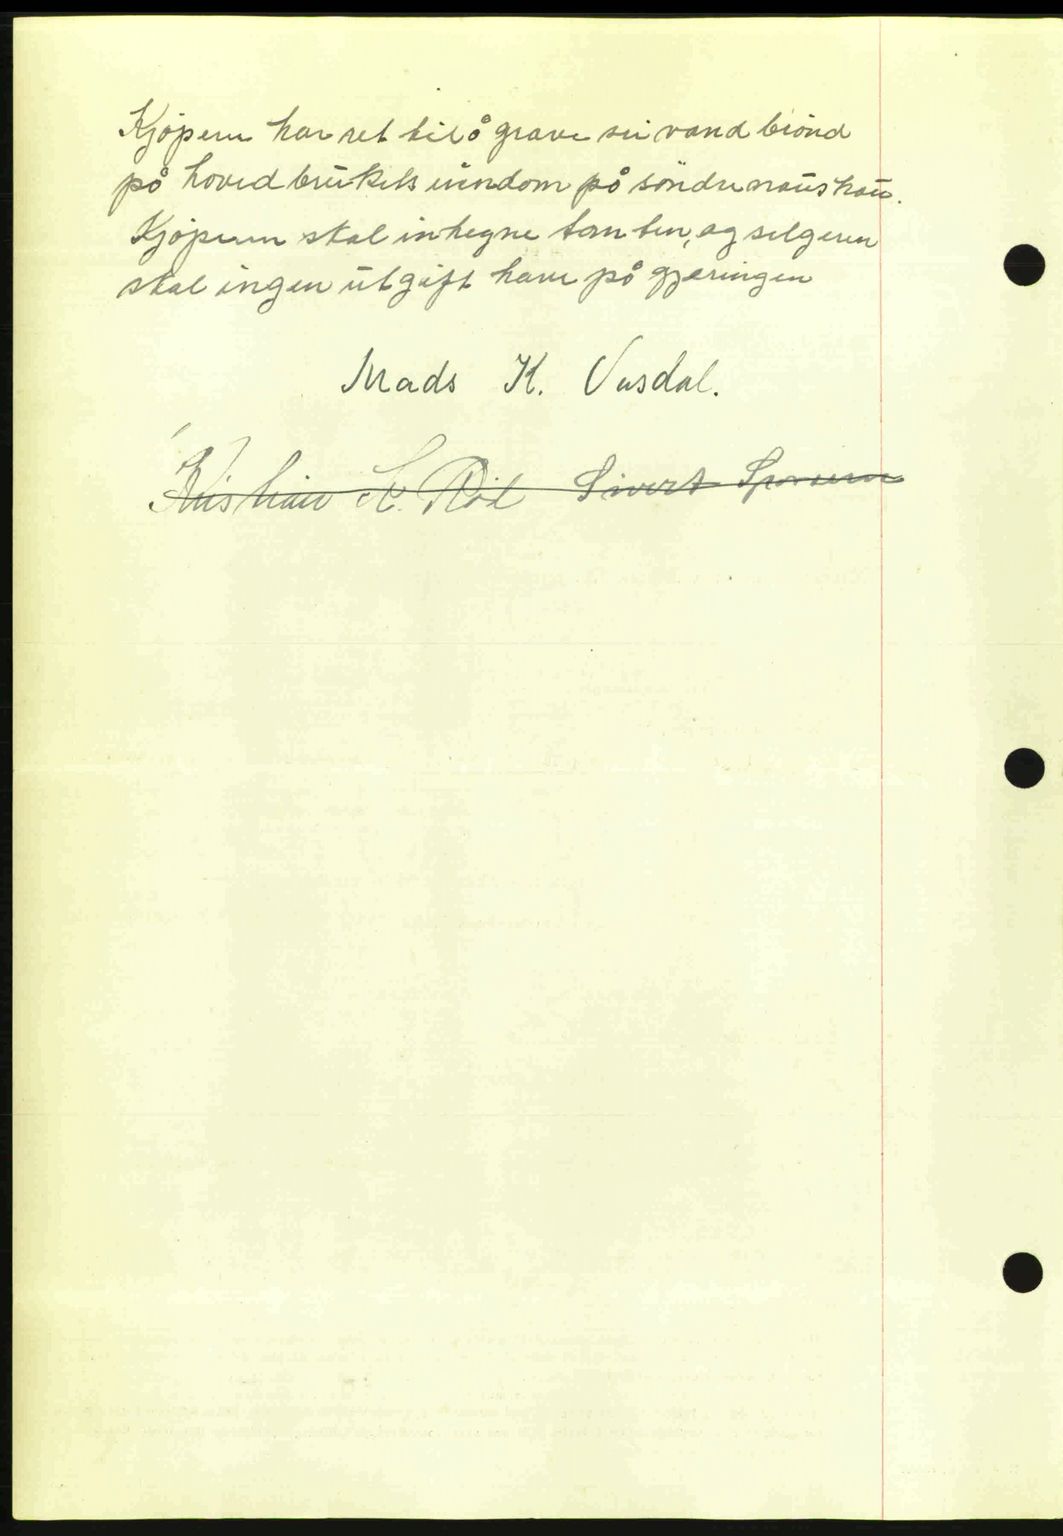 Kjöperen har ret til å grave sin vand brönd
på hovedbrukets eiendom på söndre naushau.
Kjöperen skal inhegne tomten, og selgeren
skal ingen utgift have på gjæringen
Mads K. Vasdal.
Kristian K. Röd Sivert